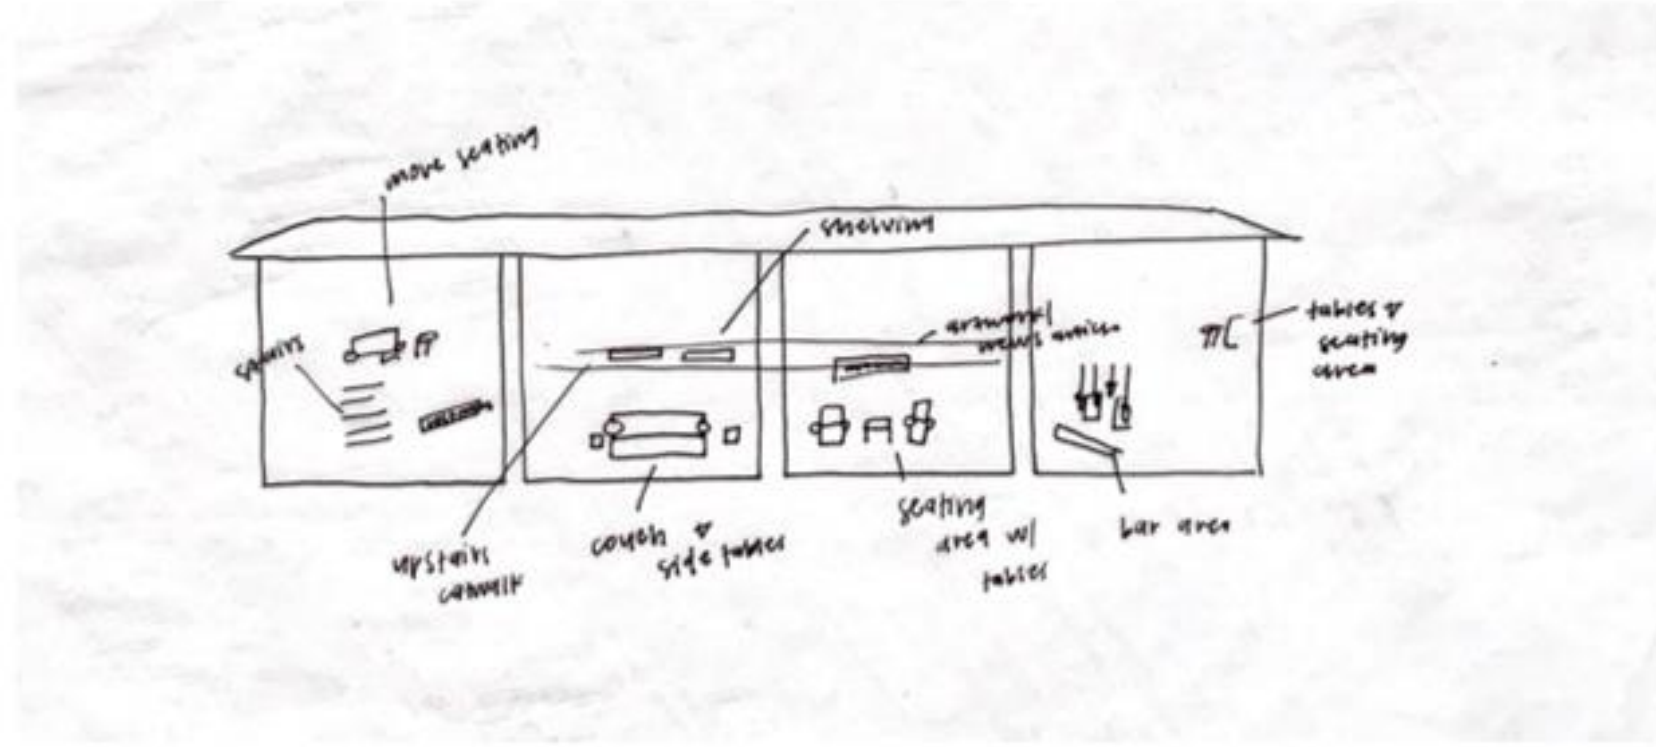 more seating
shelving
stairs
artwork/
news articles
tables &
seating
area
upstairs
catwalk
couch &
side tables
seating
area w/
tables
bar area